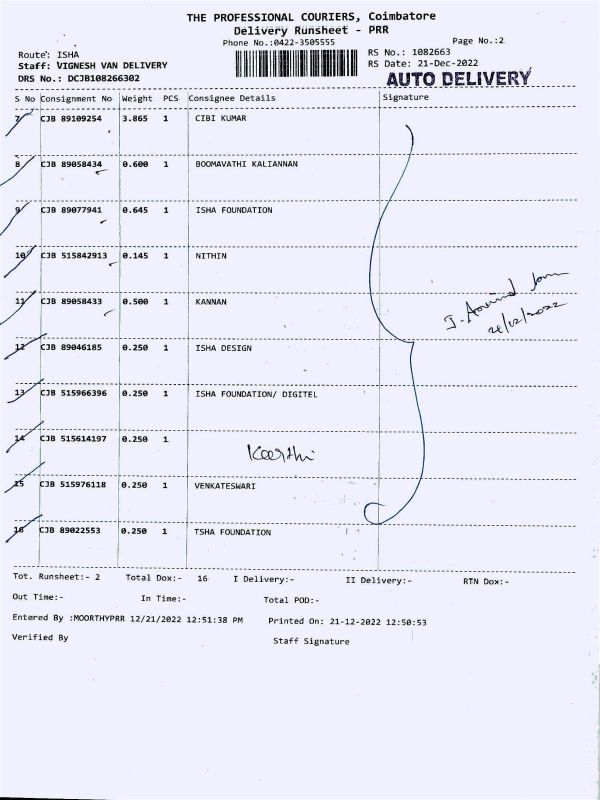 THE PROFESSIONAL COURIERS, Coimbatore
Delivery Runsheet - PRR
Phone No.:0422-3505555 Page No.:2
Route: ISHA RS No.: 1082663
Staff: VIGNESH VAN DELIVERY RS Date: 21-Dec-2022
DRS No.: DCJB108266302 AUTO DELIVERY
S No Consignment No Weight PCS Consignee Details Signature
7 CJB 89109254 3.865 1 CIBI KUMAR
8 CJB 89058434 0.600 1 BOOMAVATHI KALIANNAN
9 CJB 89077941 0.645 1 ISHA FOUNDATION
10 CJB 515842913 0.145 1 NITHIN
11 CJB 89058433 0.500 1 KANNAN
21/12/2022
12 CJB 89046185 0.250 1 ISHA DESIGN
13 CJB 515966396 0.250 1 ISHA FOUNDATION/ DIGITEL
14 CJB 515614197 0.250 1 Keerthi
15 CJB 515976118 0.250 1 VENKATESWARI
16 CJB 89022553 0.250 1 TSHA FOUNDATION
Tot. Runsheet:- 2 Total Dox:- 16 I Delivery:- II Delivery:- RTN Dox:-
Out Time:- In Time:- Total POD:-
Entered By :MOORTHYPRR 12/21/2022 12:51:38 PM Printed On: 21-12-2022 12:50:53
Verified By Staff Signature